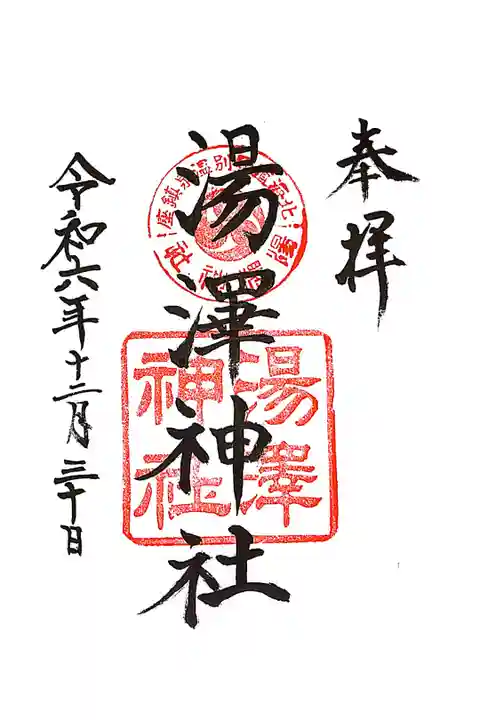 奉拝
湯澤神社
湯澤
神社
令和六年十二月三十日